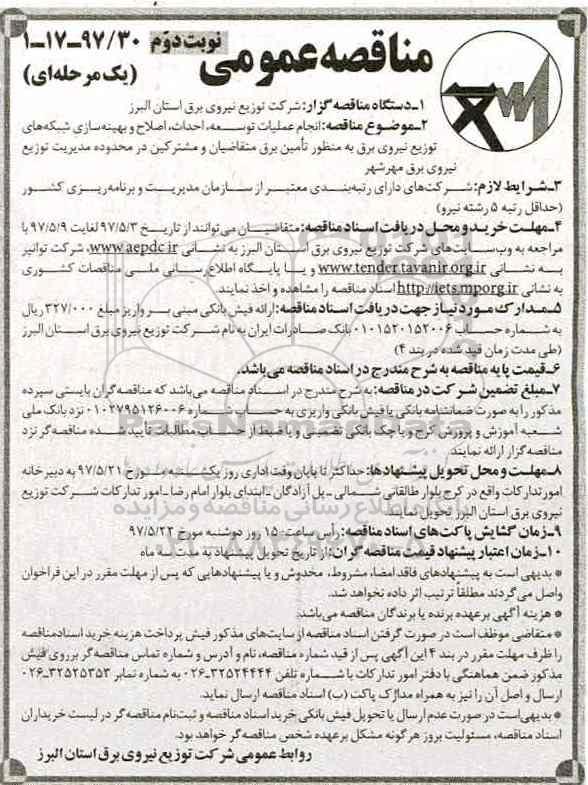 مناقصه عمومی
نوبت دوم
۹۷/۳۰-۱۷-۱
(یک مرحله‌ای)
۱ـ دستگاه مناقصه گزار: شرکت توزیع نیروی برق استان البرز
۲ـ موضوع مناقصه: انجام عملیات توسعه، احداث، اصلاح و بهینه‌سازی شبکه‌های
توزیع نیروی برق به منظور تأمین برق متقاضیان و مشترکین در محدوده مدیریت توزیع
نیروی برق مهرشهر
۳ـ شرایط لازم: شرکت‌های دارای رتبه‌بندی معتبر از سازمان مدیریت و برنامه‌ریزی کشور
(حداقل رتبه ۵ رشته نیرو)
۴ـ مهلت خرید و محل دریافت اسناد مناقصه: متقاضیان می‌توانند از تاریخ ۹۷/۵/۳ لغایت ۹۷/۵/۹ با
مراجعه به وب‌سایت‌های شرکت توزیع نیروی برق استان البرز به نشانی www.aepdc.ir، شرکت توانیر
به نشانی www.tender.tavanir.org.ir و یا پایگاه اطلاع‌رسانی ملی مناقصات کشوری
به نشانی http://iets.mporg.ir اسناد مناقصه را مشاهده و اخذ نمایند.
۵ـ مدارک مورد نیاز جهت دریافت اسناد مناقصه: ارائه فیش بانکی مبنی بر واریز مبلغ ۳۲۷/۰۰۰ ریال
به شماره حساب ۰۱۰۱۵۲۰۱۵۲۰۰۶ بانک صادرات ایران به نام شرکت توزیع نیروی برق استان البرز
(طی مدت زمان قید شده در بند ۴)
۶ـ قیمت پایه مناقصه به شرح مندرج در اسناد مناقصه می‌باشد.
۷ـ مبلغ تضمین شرکت در مناقصه: به شرح مندرج در اسناد مناقصه می‌باشد که مناقصه‌گران بایستی سپرده
مذکور را به صورت ضمانتنامه بانکی یا فیش بانکی واریزی به حساب شماره ۰۱۰۲۷۹۵۱۲۶۰۰۶ نزد بانک ملی
شعبه آموزش و پرورش کرج و یا چک بانکی تضمینی و یا ضبط از حساب مطالبات تأیید شده مناقصه‌گر نزد
مناقصه گزار ارائه نمایند.
۸ـ مهلت و محل تحویل پیشنهادها: حداکثر تا پایان وقت اداری روز یکشنبه مورخ ۹۷/۵/۲۱ به دبیرخانه
امور تدارکات واقع در کرج بلوار طالقانی شمالی ـ پل آزادگان ـ ابتدای بلوار امام رضا ـ امور تدارکات شرکت توزیع
نیروی برق استان البرز تحویل نمایند.
۹ـ زمان گشایش پاکت‌های اسناد مناقصه: رأس ساعت ۱۵ روز دوشنبه مورخ ۹۷/۵/۲۲
۱۰ـ زمان اعتبار پیشنهاد قیمت مناقصه گران: از تاریخ تحویل پیشنهاد به مدت سه ماه
* بدیهی است به پیشنهادهای فاقد امضا، مشروط، مخدوش و یا پیشنهادهایی که پس از مهلت مقرر در این فراخوان
واصل می‌گردند مطلقاً ترتیب اثر داده نخواهد شد.
* هزینه آگهی برعهده برنده یا برندگان مناقصه می‌باشد.
* متقاضی موظف است در صورت گرفتن اسناد مناقصه از سایت‌های مذکور فیش پرداخت هزینه خرید اسناد مناقصه
را ظرف مهلت مقرر در بند ۴ این آگهی پس از قید شماره مناقصه، نام و آدرس و شماره تماس مناقصه‌گر بر روی فیش
مذکور ضمن هماهنگی با دفتر امور تدارکات با شماره تلفن ۳۲۵۲۴۴۴۴-۰۲۶ به شماره نمابر ۳۲۵۲۵۳۵۳-۰۲۶
ارسال و اصل آن را نیز به همراه مدارک پاکت (ب) اسناد مناقصه ارسال نماید.
* بدیهی‌است در صورت عدم ارسال یا تحویل فیش بانکی خرید اسناد مناقصه و ثبت‌نام مناقصه‌گر در لیست خریداران
اسناد مناقصه، مسئولیت بروز هرگونه مشکل برعهده شخص مناقصه‌گر خواهد بود.
روابط عمومی شرکت توزیع نیروی برق استان البرز